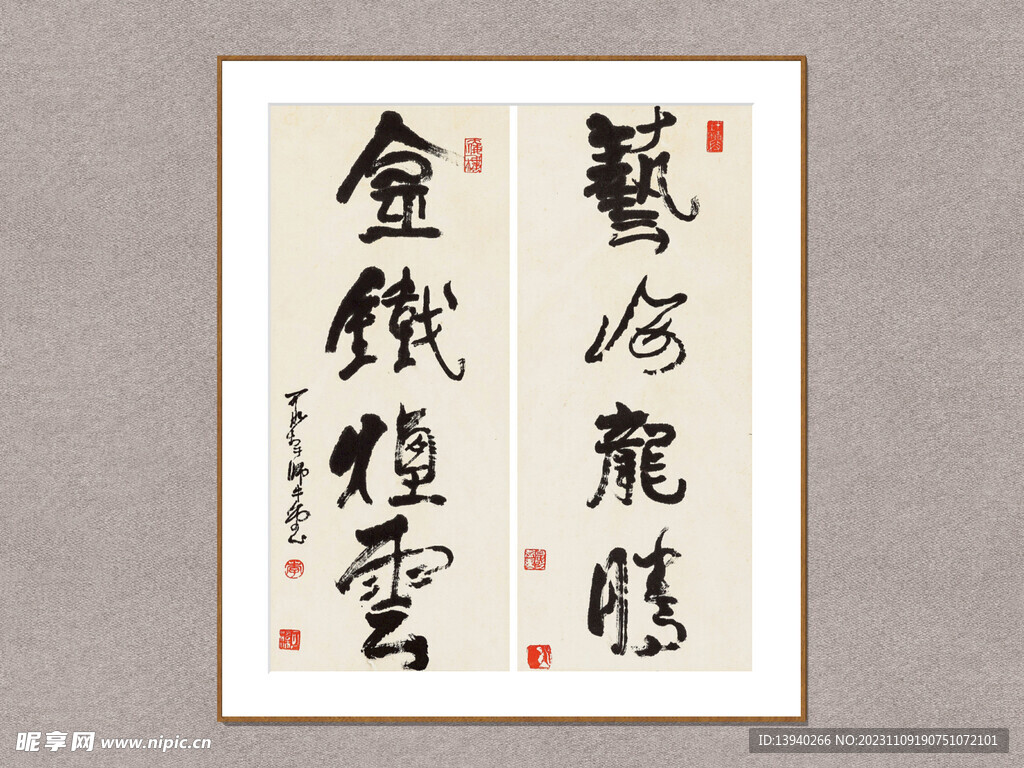 藝海龍騰
金鐵煙雲
可染於師牛堂
昵享网 www.nipic.cn
ID:13940266 NO:20231109190751072101